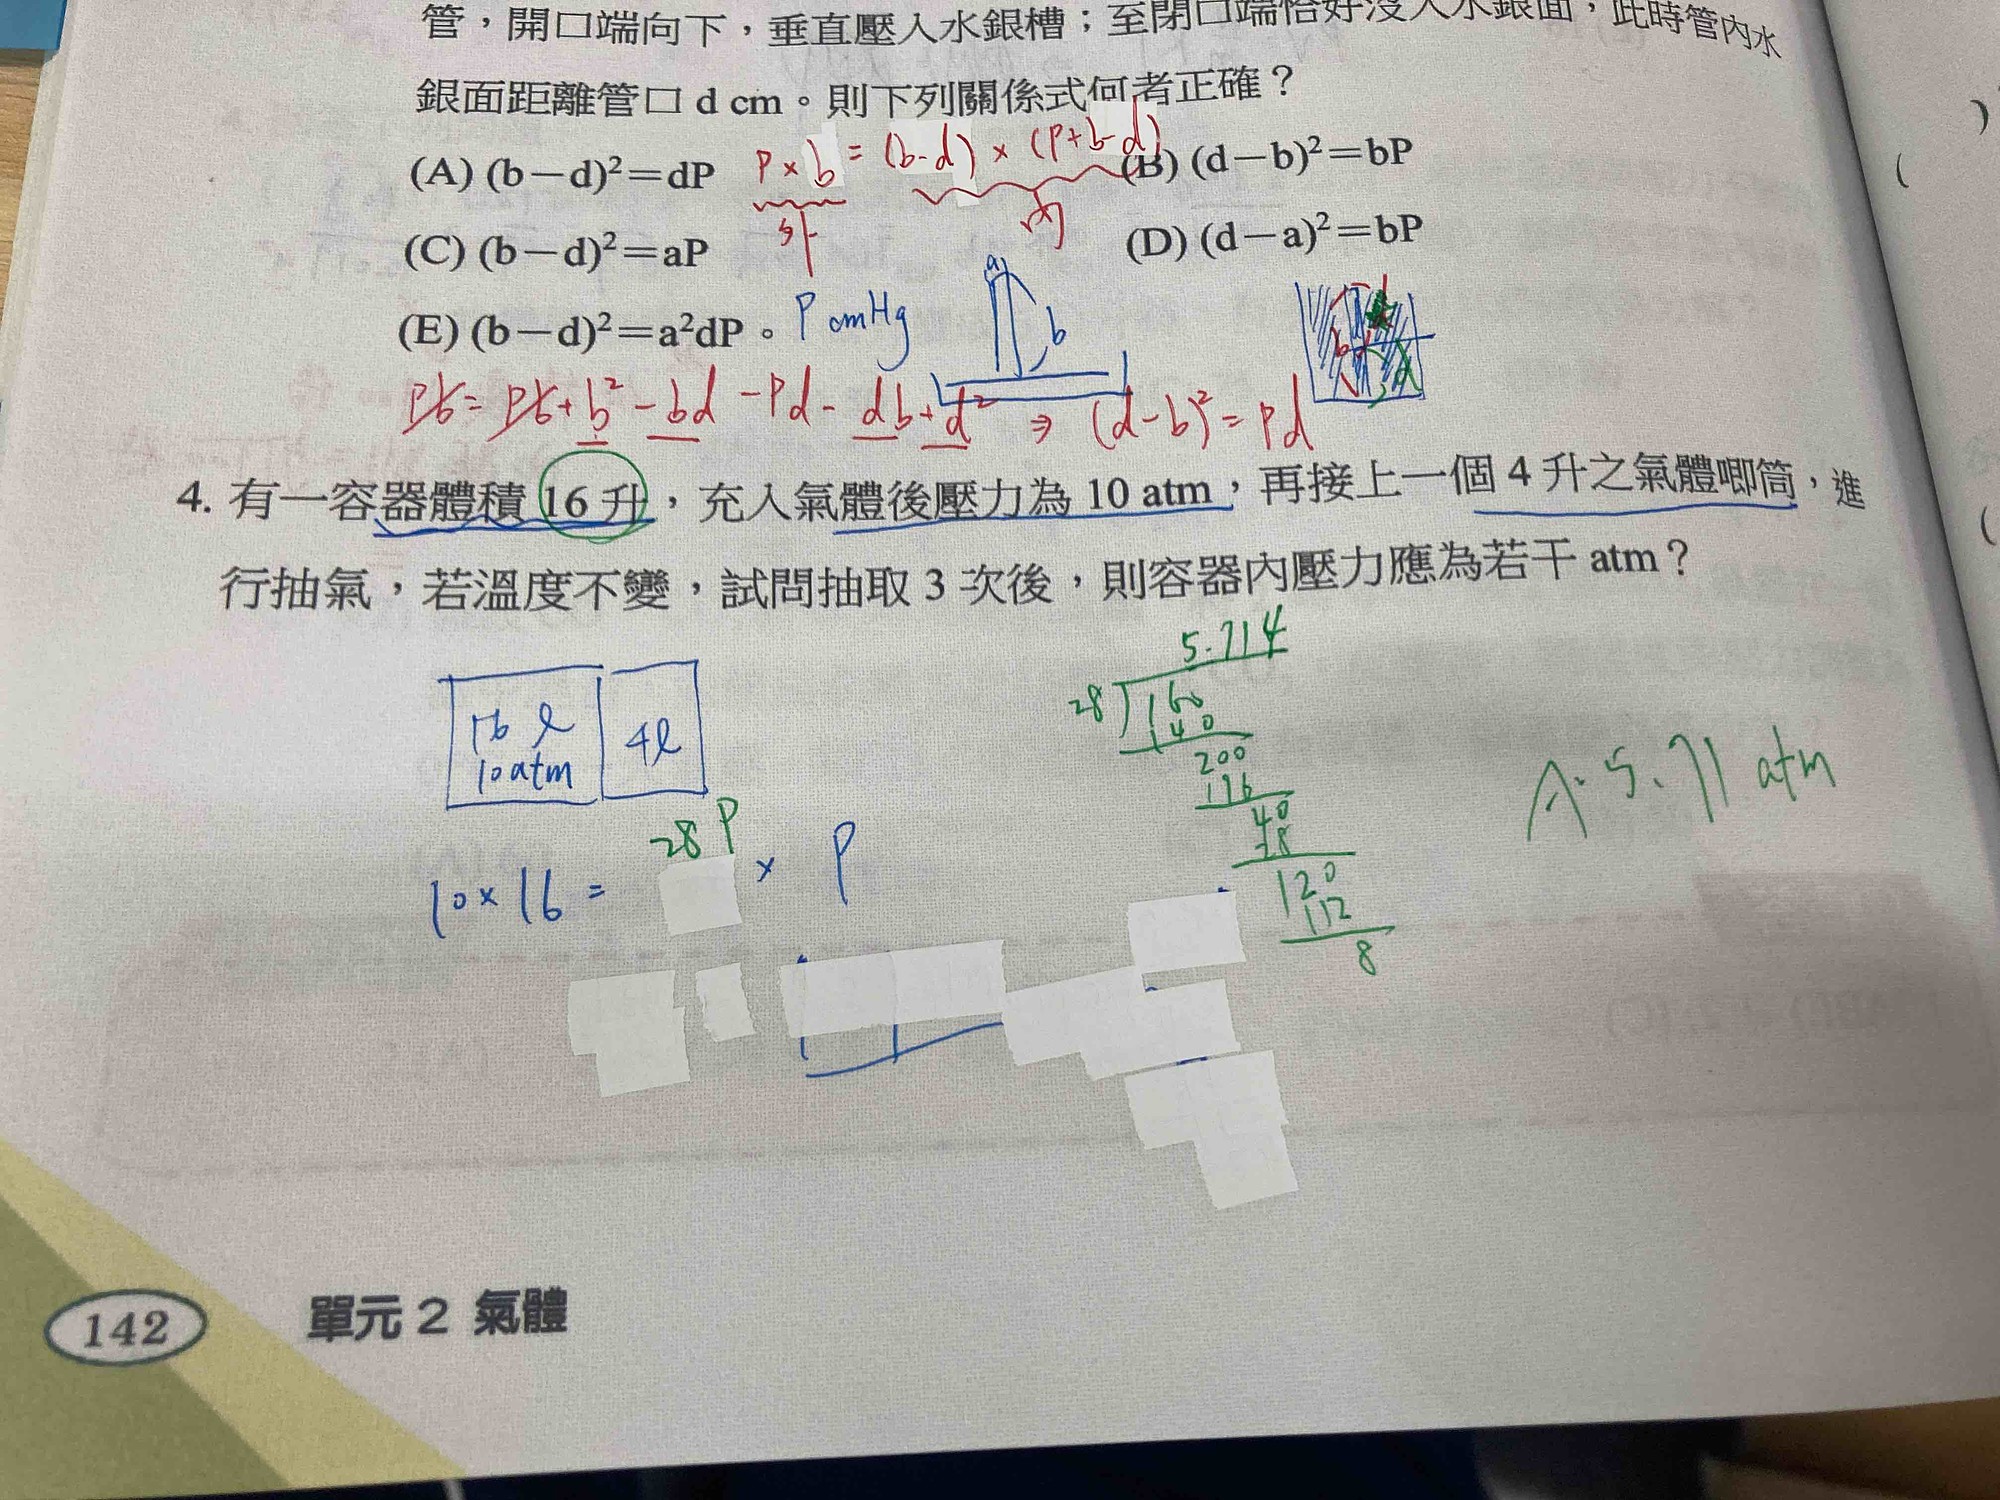 管，開口端向下，垂直壓入水銀槽；至閉口端恰好沒入水銀面，此時管內水
銀面距離管口 d cm。則下列關係式何者正確？
(A) (b－d)²＝dP
P × b = (b-d) × (P+b-d)
(B) (d－b)²＝bP
外
內
(C) (b－d)²＝aP
(D) (d－a)²＝bP
(E) (b－d)²＝a²dP。
P cmHg
a
b
b
d
Pb = Pb + b² - bd - Pd - db + d² ⇒ (d-b)² = Pd
4. 有一容器體積 16 升，充入氣體後壓力為 10 atm，再接上一個 4 升之氣體唧筒，進
行抽氣，若溫度不變，試問抽取 3 次後，則容器內壓力應為若干 atm？
16 ℓ
10 atm
4ℓ
28 P
10 × 16 = × P
5.714
28
160
140
200
196
40
28
120
112
8
A: 5.71 atm
142
單元 2 氣體